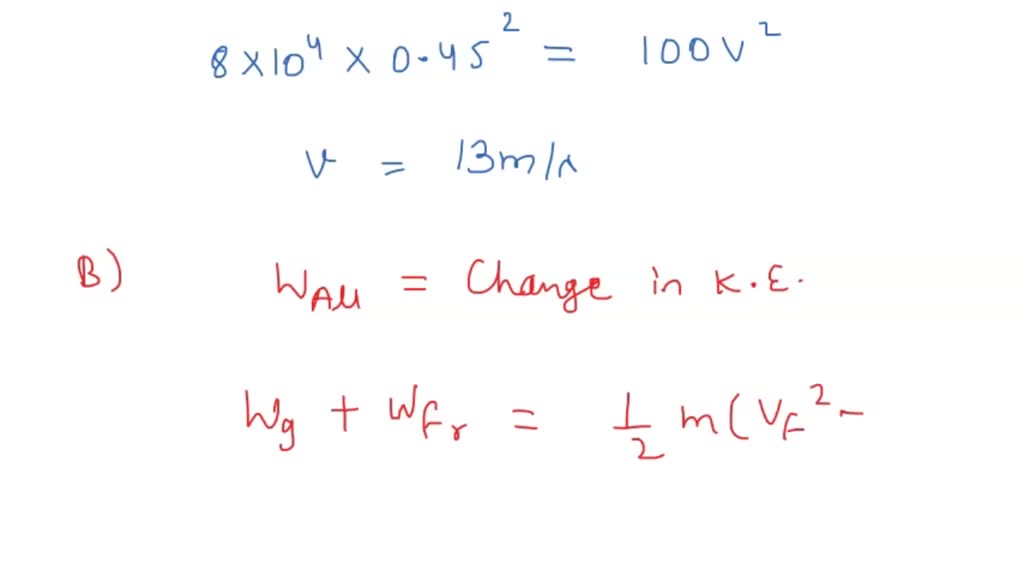 8 × 10⁴ × 0.45² = 100 v²
v = 13 m/s
B) W_All = Change in K.E.
W_g + W_fr = 1/2 m (V_F² -